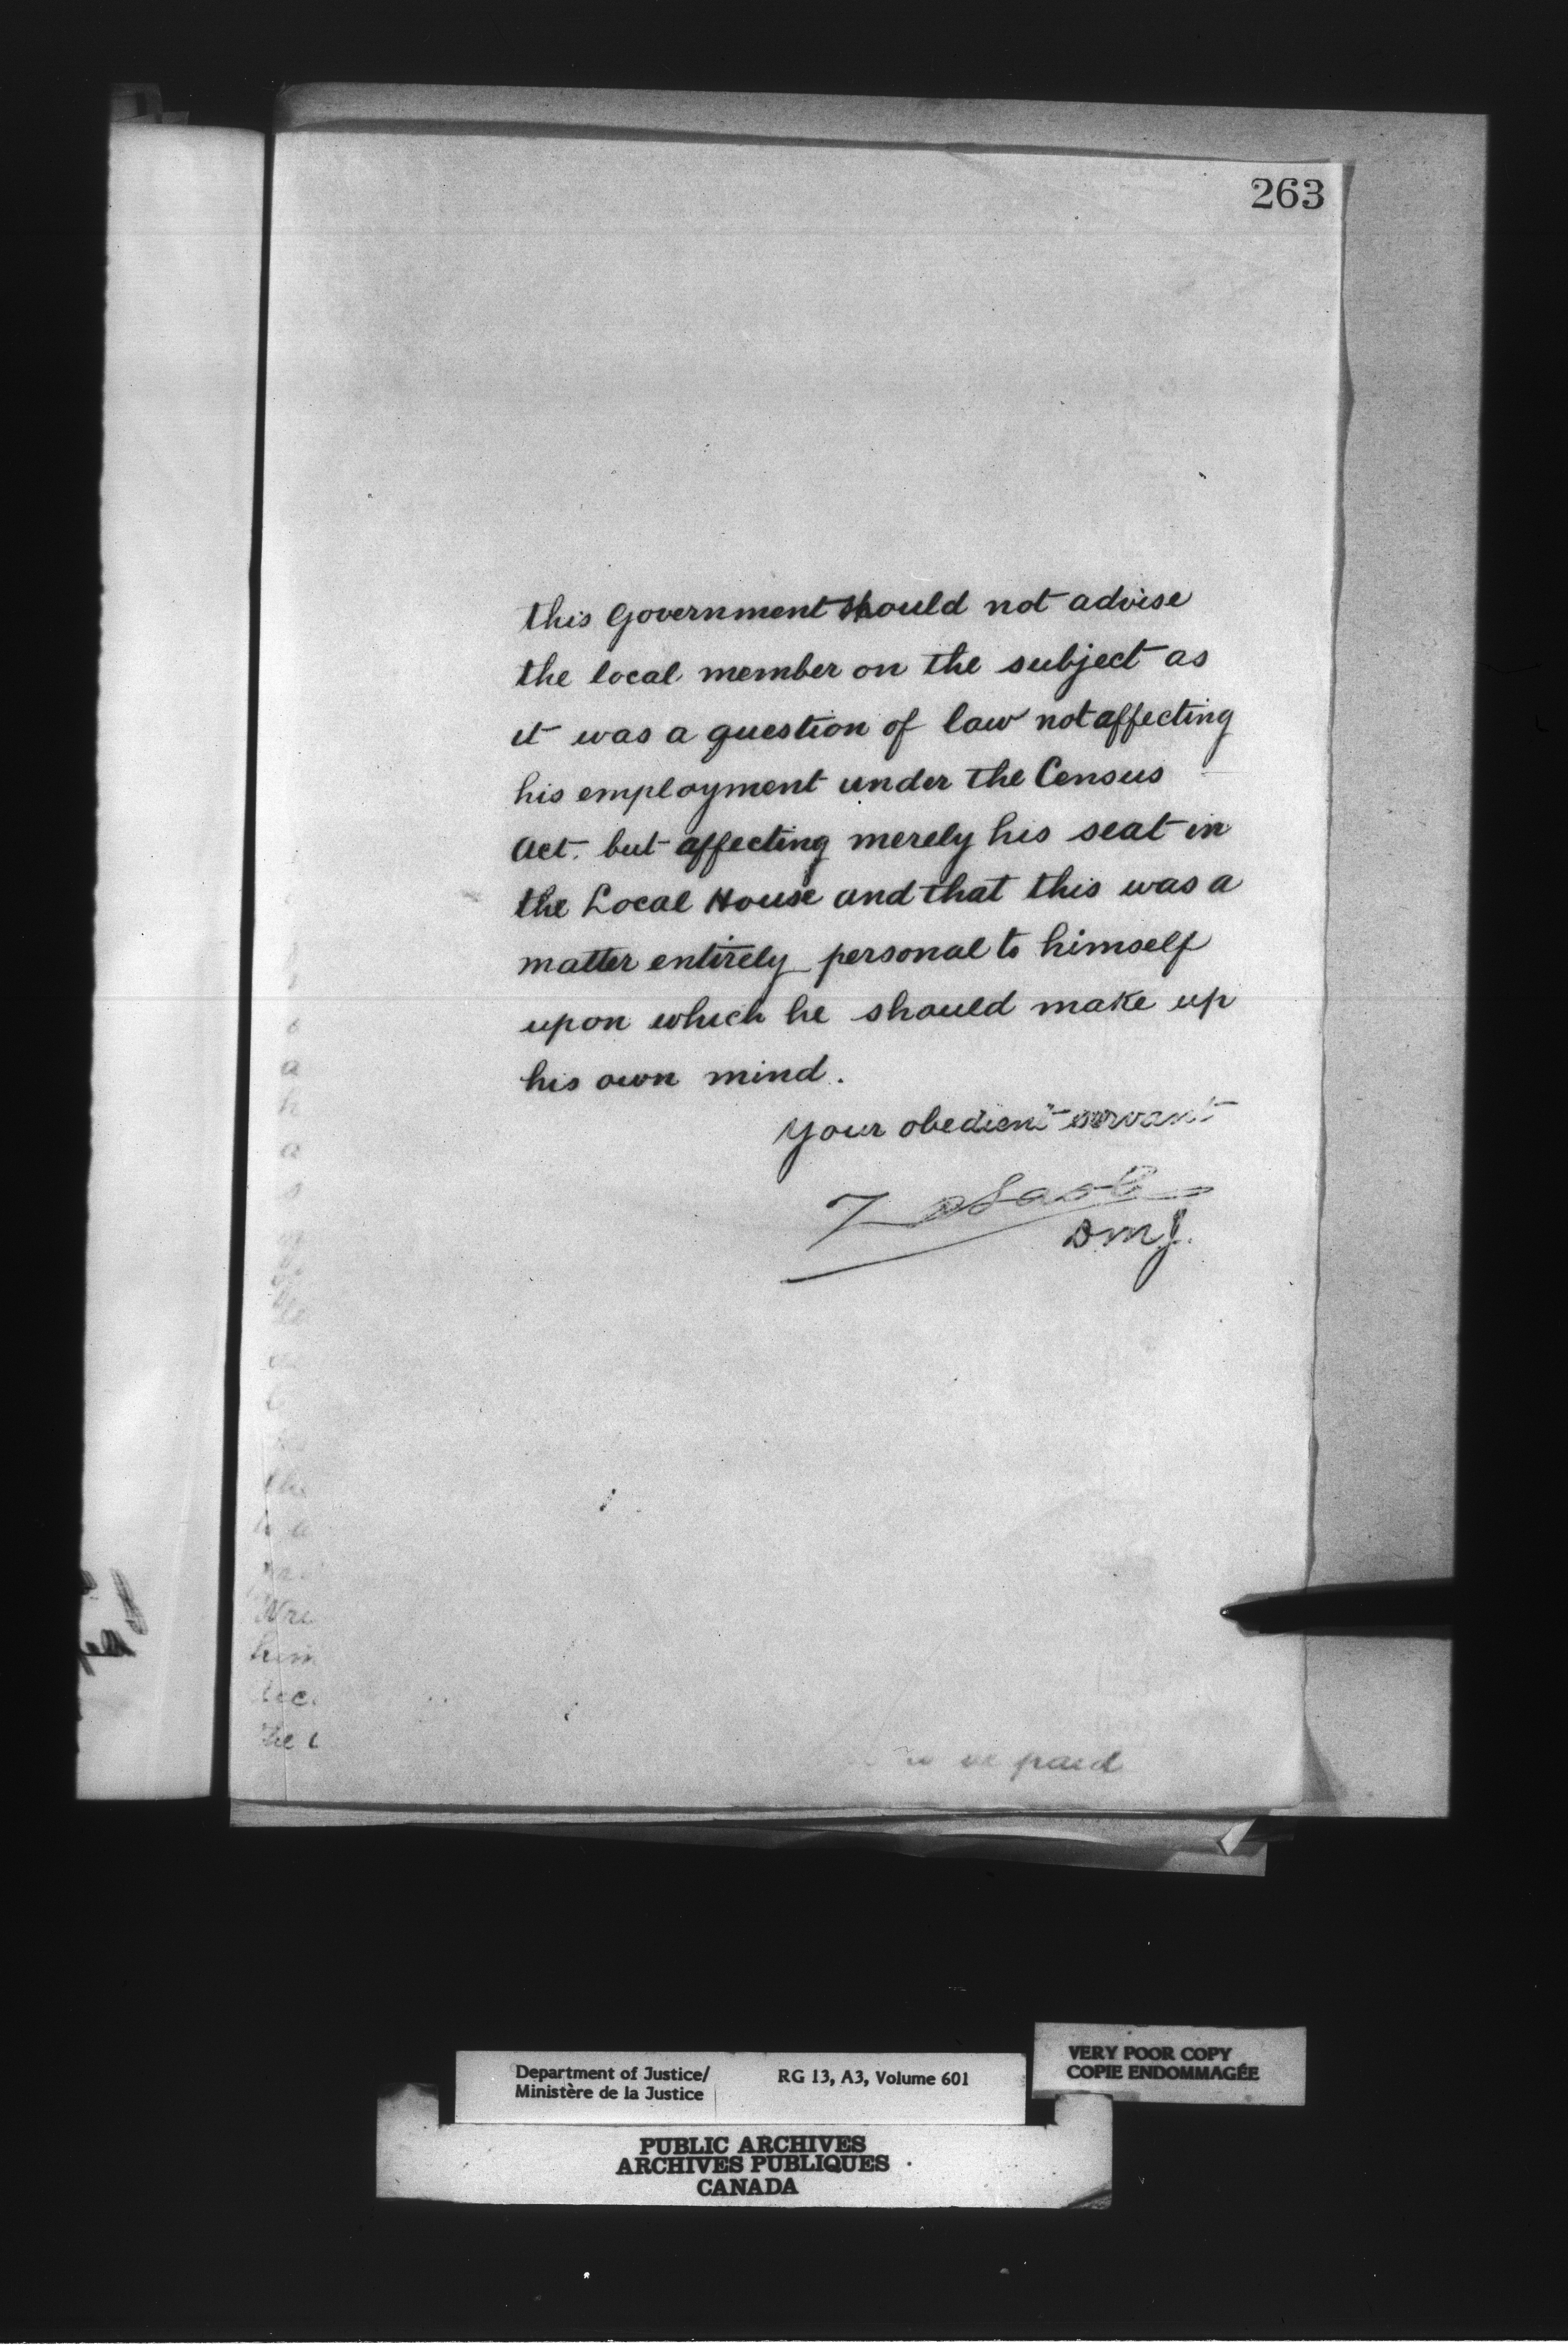 263
this Government should not advise
the local member on the subject as
it was a question of law not affecting
his employment under the Census
Act. but affecting merely his seat in
the Local House and that this was a
matter entirely personal to himself
upon which he should make up
his own mind.
Your obedient servant
DMJ.
him
paid
Department of Justice/
Ministère de la Justice
RG 13, A3, Volume 601
VERY POOR COPY
COPIE ENDOMMAGÉE
PUBLIC ARCHIVES
ARCHIVES PUBLIQUES
CANADA